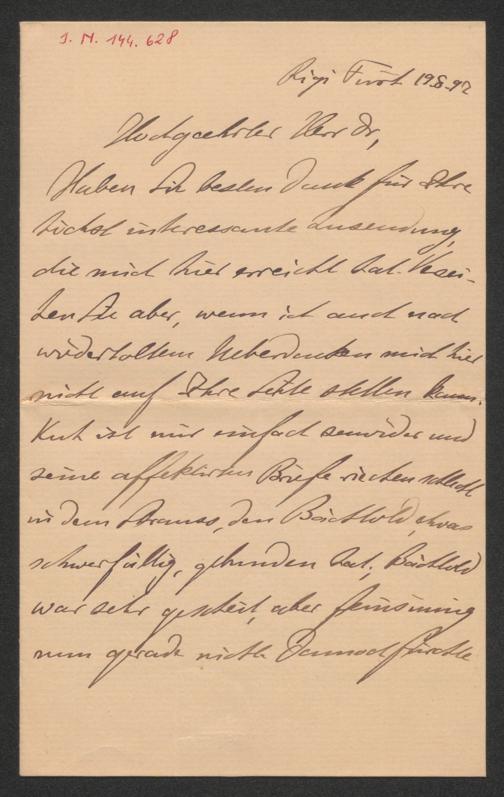 I. N. 144.628
Rigi First 19.8.97
Hochgeehrter Herr Dr,
Haben Sie besten Dank für Ihre
höchst interessante Zusendung,
die mich hier erreicht hat. Verzei-
hen Sie aber, wenn ich auch nach
wiederholtem Ueberdenken mich hier
nicht auf Ihre Seite stellen kann.
Kuh ist mir einfach zuwider und
seine affektirten Briefe riechen schlecht
in dem Strauss, den Bächtold, etwas
schwerfällig, gebunden hat; Bächtold
war sehr gescheit, aber feinsinnig
nun gerade nicht. Dennoch fürchte